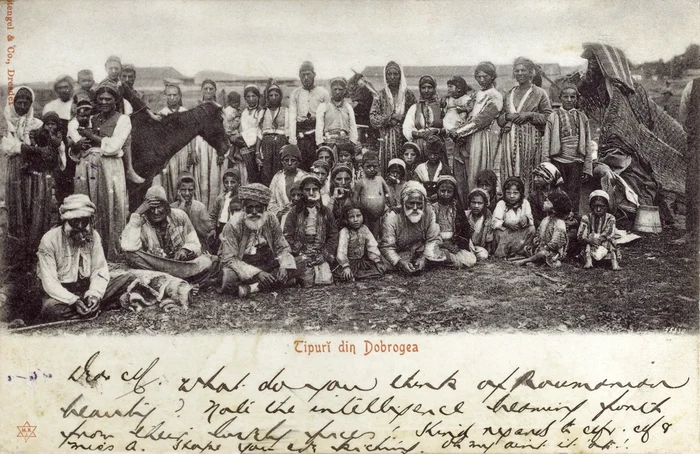 Stengel & Co., Dresden
Tipurĭ din Dobrogea
What do you think of Roumanian
beauty? Note the intelligence beaming forth
from their lovely faces! Kind regards to
Miss A. Hope you are kicking. Oh my ain't it